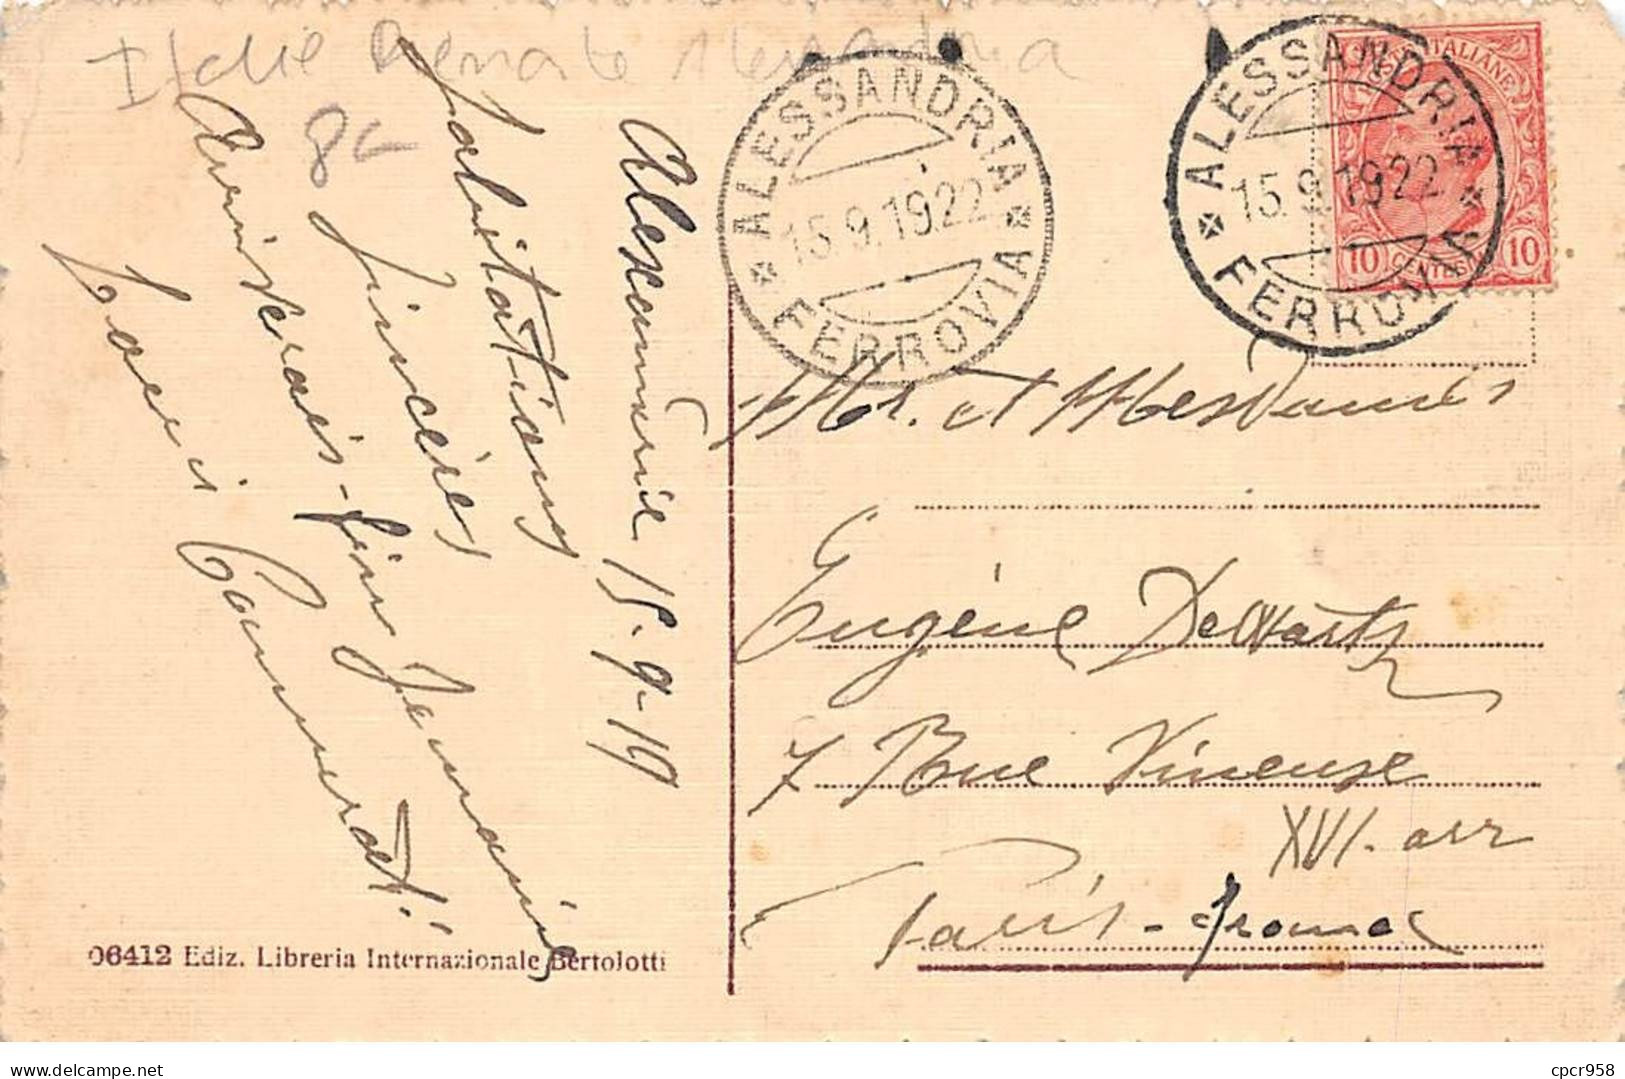 Italie Alexandria
8€
Alexandrie 15.9.19
Salutations
sincères
fin Janvier
ALESSANDRIA
15.9.1922
FERROVIA
ALESSANDRIA
15.9.1922
FERROVIA
ITALIANE
10 CENTES 10
Mr. et Mesdames
Eugène Delâtre
7 Rue Vineuse
XVI. arr
Paris - France
06412 Ediz. Libreria Internazionale Bertolotti
cpcr958